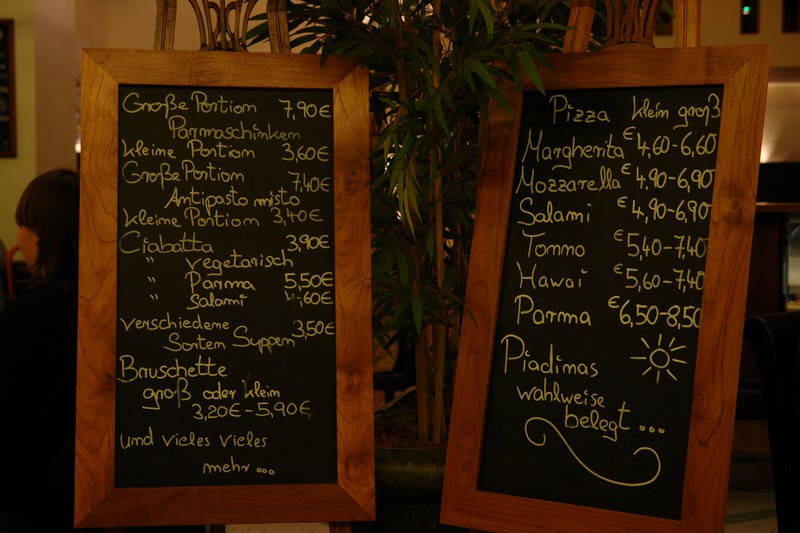 Große Portion 7,90€
Parmaschinken
kleine Portion 3,60€
Große Portion 7,40€
Antipasto misto
kleine Portion 3,40€
Ciabatta 3,90€
" vegetarisch
" Parma 5,50€
" Salami 4,60€
verschiedene 3,50€
Sorten Suppen
Bruschette
groß oder klein
3,20€-5,90€
und vieles vieles
mehr...
Pizza klein groß
Margherita €4,60-6,60
Mozzarella €4,90-6,90
Salami €4,90-6,90
Tonno €5,40-7,40
Hawai €5,60-7,40
Parma €6,50-8,50
Piadinas
wahlweise
belegt...